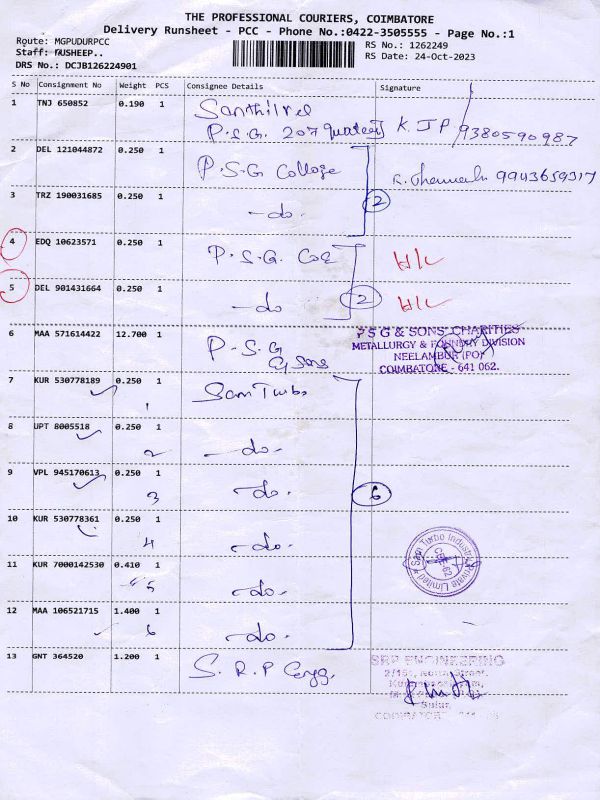 THE PROFESSIONAL COURIERS, COIMBATORE
Delivery Runsheet - PCC - Phone No.:0422-3505555 - Page No.:1
Route: MGPUDURPCC
RS No.: 1262249
Staff: RUSHEEP..
RS Date: 24-Oct-2023
DRS No.: DCJB126224901
S No Consignment No Weight PCS Consignee Details Signature
1 TNJ 650852 0.190 1 Santhilvel
P.S.G. 207 K.J.P 9380590987
2 DEL 121044872 0.250 1 P.S.G College
R. 9943659317
3 TRZ 190031685 0.250 1 -do- 2
4 EDQ 10623571 0.250 1 P.S.G. COE H/C
5 DEL 901431664 0.250 1 -do- 2 H/C
6 MAA 571614422 12.700 1 P.S.G & Sons
P S G & SONS' CHARITIES
METALLURGY & FOUNDRY DIVISION
NEELAMBUR (PO)
COIMBATORE - 641 062.
7 KUR 530778189 0.250 1 Sam Turbo
1
8 UPT 8005518 0.250 1 -do-
2
9 VPL 945170613 0.250 1 -do- 6
3
10 KUR 530778361 0.250 1 -do-
4
Sam Turbo Industry Private Limited
CBE-62
11 KUR 7000142530 0.410 1 -do-
5
12 MAA 106521715 1.400 1 -do-
6
13 GNT 364520 1.200 1 S.R.P Engg.
SRP ENGINEERING
Sulur,